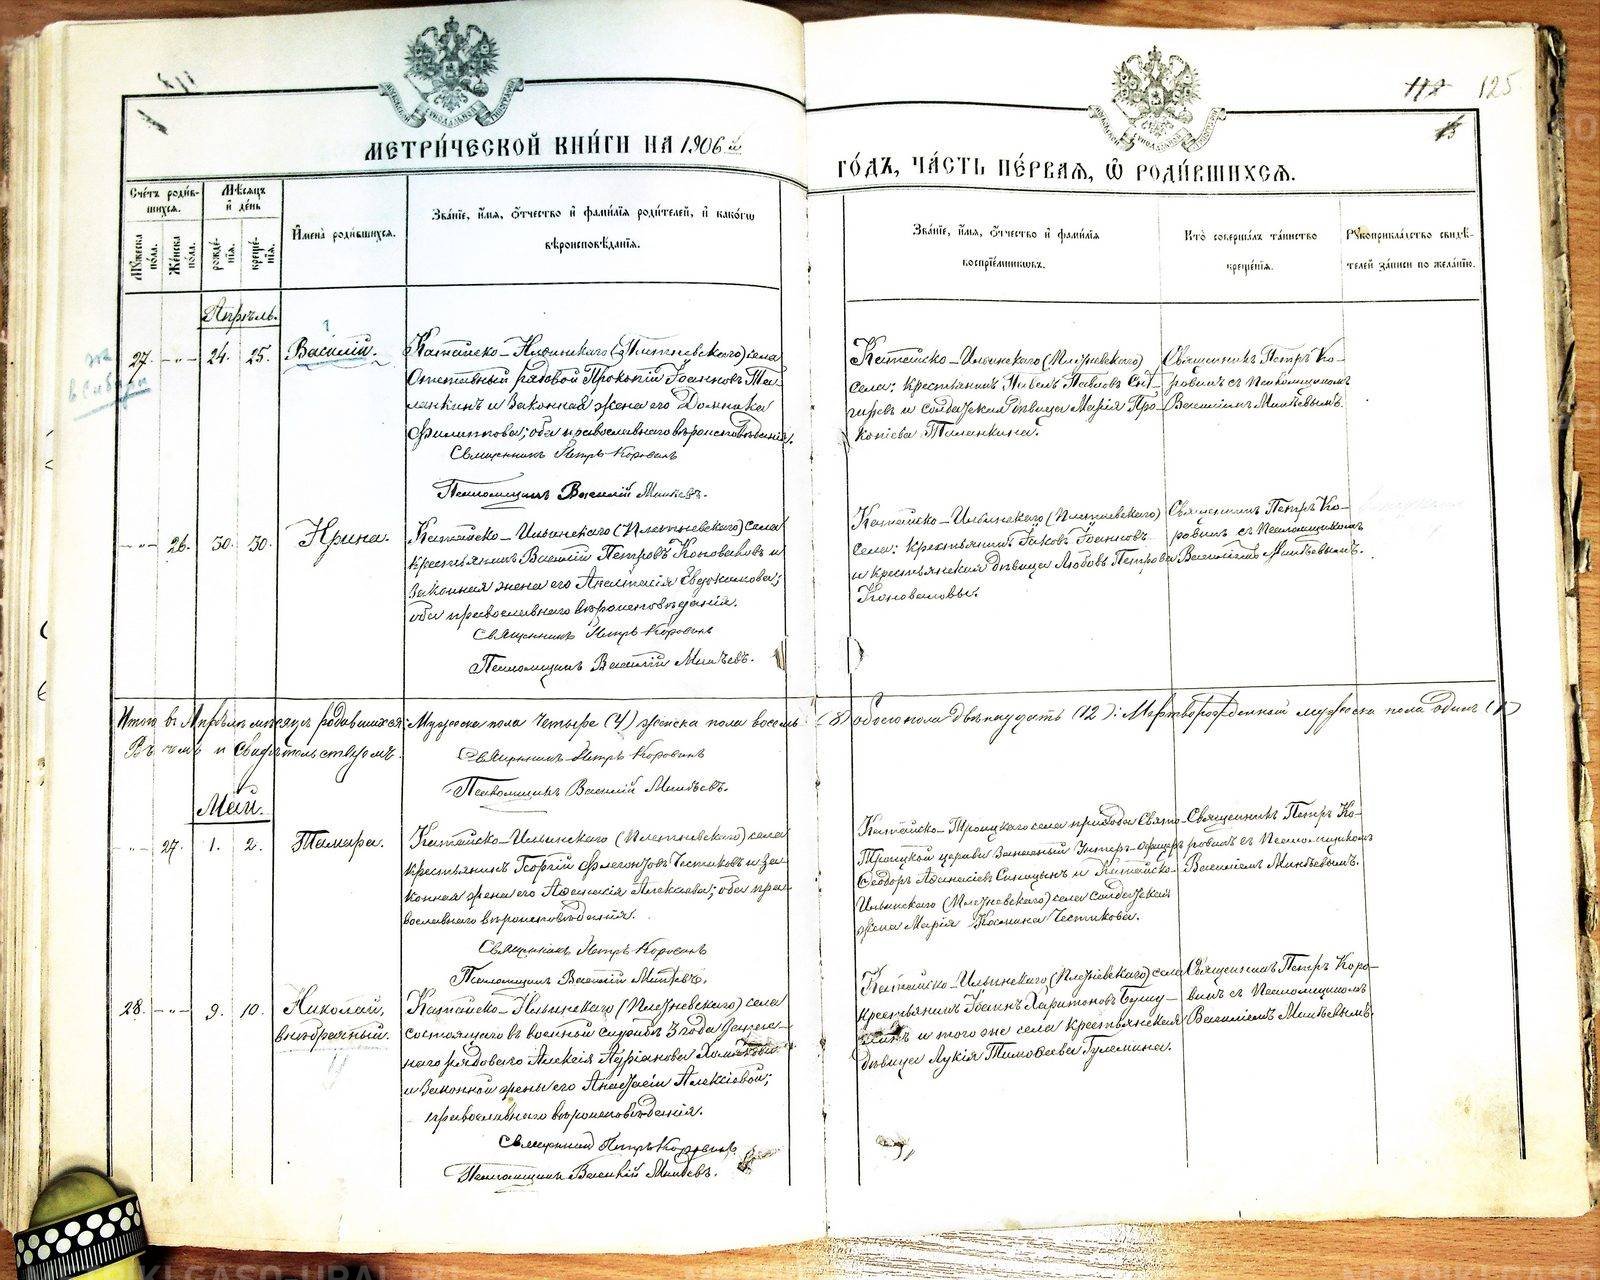 112 125
МЕТРИ́ЧЕСКОЙ КНИ́ГИ НА 1906 й
ГО́ДЪ, ЧА́СТЬ ПЕ́РВАЯ, Ѽ РОДИ́ВШИХСЯ.
Сче́тъ роди́в-
шихся.
Мѣ́сяцъ
и де́нь
Му́жеска по́ла.
Же́нска по́ла.
рожде́-нія.
креще́-нія.
Имена̀ роди́вшихся.
Зва́ніе, и́мя, о́тчество и фами́лія роди́телей, и како́гѡ
вѣроисповѣ́данія.
Зва́ніе, и́мя, о́тчество и фами́лія
воспріе́мникѡвъ.
Кто̀ соверша́лъ та́инство
креще́нія.
Рукоприкла́дство свидѣ́-
телей за́писи по жела́нію.
Апрѣль.
27. -"- 24. 25. Василій.
Катайско-Ильинскаго (Плотневскаго) села
Отставный рядовой Прокопій Іоанновъ Та-
ланкинъ и законная жена его Домника
Филиппова; оба православнаго вѣроисповѣданія.
Священникъ Петръ Коровинъ
Псаломщикъ Василій Минѣевъ.
Катайско-Ильинскаго (Плотневскаго)
села: крестьянинъ Павелъ Павловъ Сны-
гиревъ и солдатская дѣвица Марія Про-
копіева Таланкина.
Священникъ Петръ Ко-
ровинъ съ Псаломщикомъ
Василіемъ Минѣевымъ.
-"- 26. 30. 30. Ирина.
Катайско-Ильинскаго (Плотневскаго) села
крестьянинъ Василій Петровъ Коноваловъ и
законная жена его Анастасія Евдокимова;
оба православнаго вѣроисповѣданія.
Священникъ Петръ Коровинъ
Псаломщикъ Василій Минѣевъ.
Катайско-Ильинскаго (Плотневскаго)
села: крестьянинъ Іаковъ Іоанновъ
и крестьянская дѣвица Любовь Петрова
Коноваловы.
Священникъ Петръ Ко-
ровинъ съ Псаломщикомъ
Василіемъ Минѣевымъ.
Итого въ Апрѣлѣ мѣсяцѣ родившихся: Мужеска пола четыре (4) женска пола восемь (8) обоего пола двѣнадцать (12): Мертворожденный мужеска пола одинъ (1)
Въ чемъ и свидѣтельствуемъ:
Священникъ Петръ Коровинъ
Псаломщикъ Василій Минѣевъ.
Май.
-"- 27. 1. 2. Тамара.
Катайско-Ильинскаго (Плотневскаго) села
крестьянинъ Георгій Флегонтовъ Честиковъ и за-
конная жена его Афанасія Алексіева; оба пра-
вославнаго вѣроисповѣданія.
Священникъ Петръ Коровинъ
Псаломщикъ Василій Минѣевъ.
Катайско-Троицкаго села прихода Свято-
Троицкой церкви Запасный Унтеръ-офицеръ
Ѳеодоръ Аѳанасіевъ Синицынъ и Катайско-
Ильинскаго (Плотневскаго) села солдатская
жена Марія Честикова.
Священникъ Петръ Ко-
ровинъ съ Псаломщикомъ
Василіемъ Минѣевымъ.
28. -"- 9. 10. Николай,
внѣбрачный.
Катайско-Ильинскаго (Плотневскаго) села
состоящаго въ военной службѣ 3 года
наго рядоваго Алексія
и законной жены его Анастасіи Алексіевой;
православнаго вѣроисповѣданія.
Священникъ Петръ Коровинъ
Псаломщикъ Василій Минѣевъ.
Катайско-Ильинскаго (Плотневскаго) села
крестьянинъ Іоаннъ Харитоновъ
и того же села крестьянская
дѣвица Лукія Тимоѳеева Гулемина.
Священникъ Петръ Коро-
винъ съ Псаломщикомъ
Василіемъ Минѣевымъ.